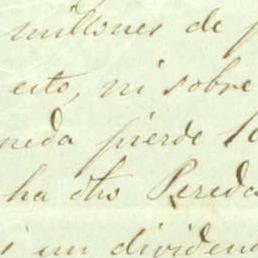 millones de
esto, ni sobre
neda pierde
ha dho Pereda
un dividend